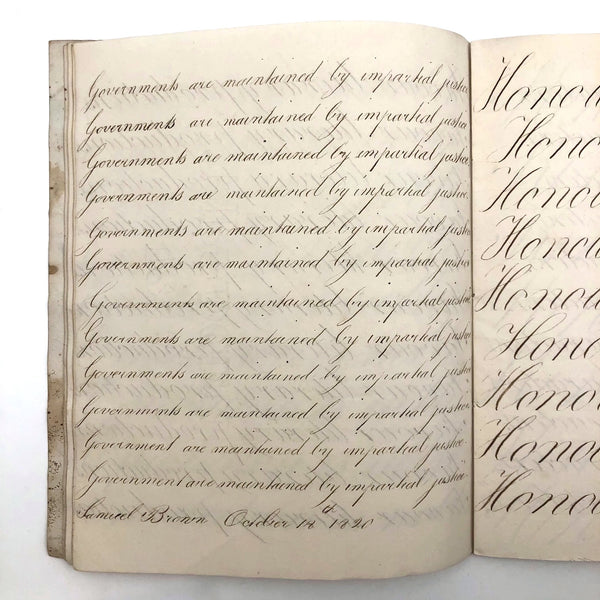 Governments are maintained by impartial justice
Governments are maintained by impartial justice
Governments are maintained by impartial justice
Governments are maintained by impartial justice
Governments are maintained by impartial justice
Governments are maintained by impartial justice
Governments are maintained by impartial justice
Governments are maintained by impartial justice
Governments are maintained by impartial justice
Governments are maintained by impartial justice
Government are maintained by impartial justice
Government are maintained by impartial justice
Samuel Brown October 14th 1820
Honou
Hono
Honou
Honou
Honou
Hono
Honou
Honou
Honou